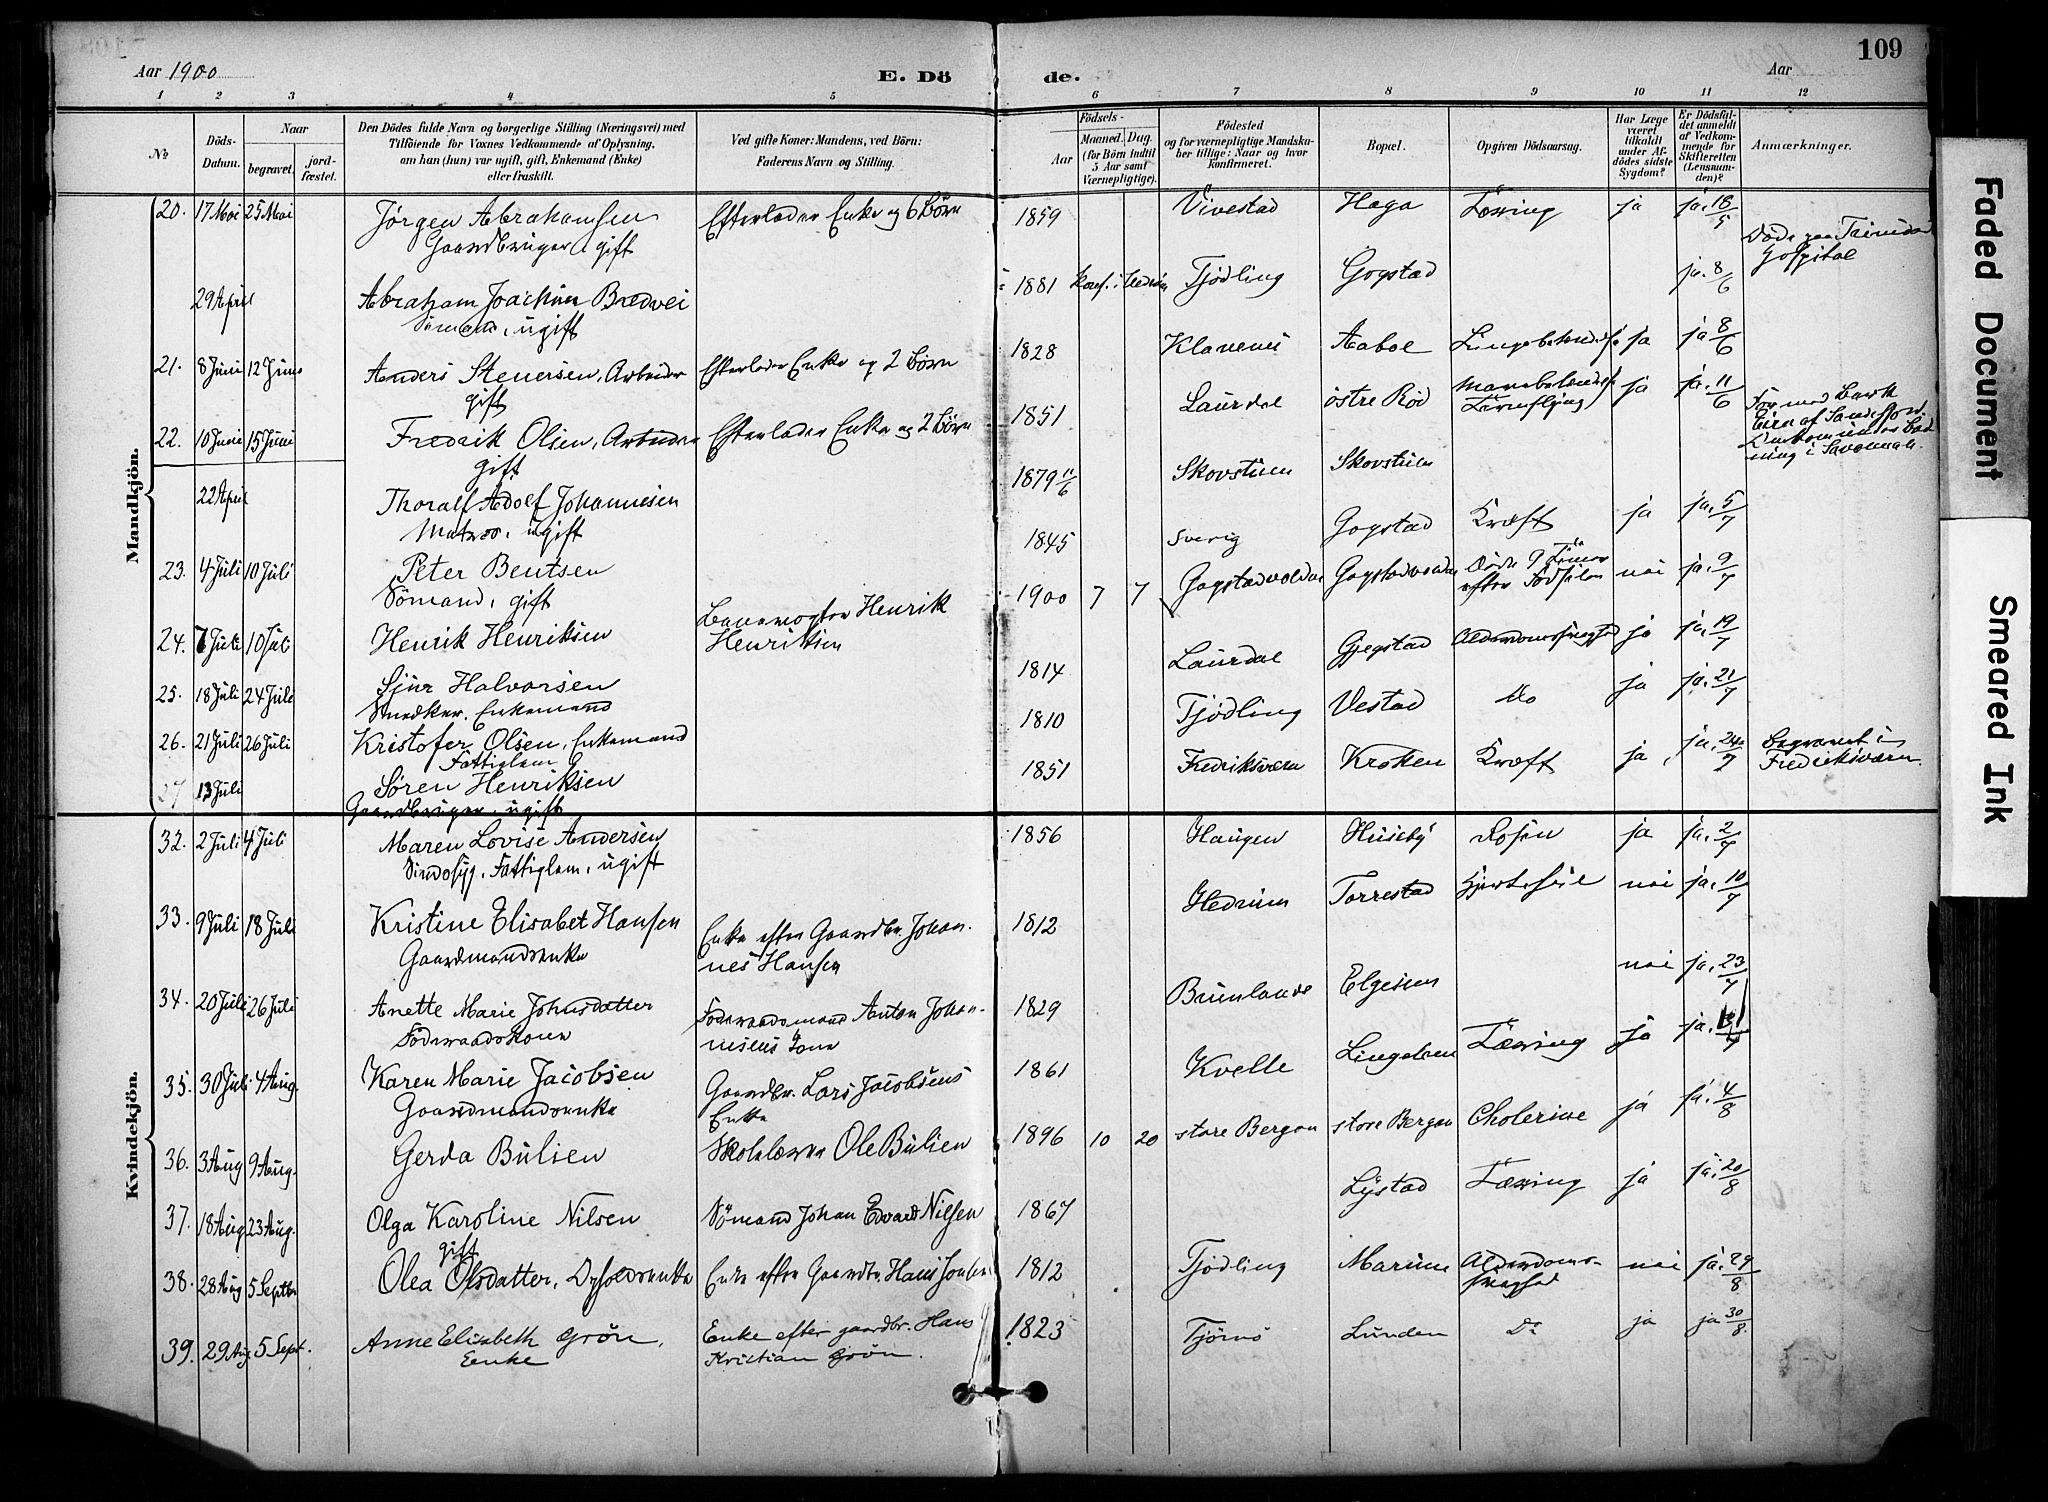 109
Aar 1900
E. Dö
de.
Aar
1 2 3 4 5 6 7 8 9 10 11 12
№
Döds-
Datum.
Naar
begravet.
jord-
fæstet.
Den Dödes fulde Navn og borgerlige Stilling (Næringsvei) med
Tilföiende for Voxnes Vedkommende af Oplysning,
om han (hun) var ugift, gift, Enkemand (Enke)
eller fraskilt.
Ved gifte Koner: Mandens, ved Börn:
Faderens Navn og Stilling.
Födsels-
Aar
Maaned. Dag.
(for Börn indtil
5 Aar samt
Værnepligtige).
Födested
og for værnepligtige Mandska-
ber tillige: Naar og hvor
konfirmeret.
Bopæl.
Opgiven Dödsaarsag.
Har Læge
været
tilkaldt
under Af-
dödes sidste
Sygdom?
Er Dödsfal-
det anmeldt
af Vedkom-
mende for
Skifteretten
(Lensman-
den)?
Anmærkninger.
Mandkjön.
20. 17 Mai 25 Mai Jørgen Abrahamsen Efterlader Enke og 6 Börn 1859 Vivestad Haga Tæring ja ja. 18/5
Gaardbruger, gift
Döde paa Trinidad
Hospital
29 April Abraham Joachim Bredvei 1881 Konf. i Hedrum Tjødling Gogstad ja. 8/6
Sömand, ugift
21. 8 Juni 12 Juni Anders Stenersen, Arbeider Efterlader Enke og 2 Börn 1828 Klavenes Aaboe ja ja 8/6
gift
22. 10 Juni 15 Juni Fredrik Olsen, Arbeider Efterlader Enke og 2 Börn 1851 Laurdal östre Rød ja ja. 11/6
gift
22 April Thoralf Adolf Johannesen 1879 11/6 Skovstuen Skovstuen
Matros, ugift
For med Bark
af Sandefjord
ning i Savannah.
23. 4 Juli 10 Juli Peter Bentsen 1845 Sverig Gogstad Kræft ja ja, 5/7
Sömand, gift
24. 7 Juli 10 Juli Henrik Henriksen Banevogter Henrik
Henriksen 1900 7 7 Gogstadvolden Gogstadvolden Döde 9 Timer
efter Födselen nei ja. 9/7
25. 18 Juli 24 Juli Sjur Halvorsen 1814 Laurdal Gjegstad Alderdomssvaghed ja ja, 19/7
Snedker. Enkemand
26. 21 Juli 26 Juli Kristofer Olsen, Enkemand 1810 Tjödling Vestad Do ja ja, 21/7
Fattiglem
27 13 Juli Sören Henriksen 1851 Fredriksværn Kroken Kræft ja, ja. 24/7 Begravet i
Fredriksværn.
Gaardbruger, ugift
Kvindekjön.
32. 2 Juli 4 Juli Maren Lovise Andersen 1856 Haugen Huseby Rosen ja ja. 2/7
Sindssyg, Fattiglem, ugift
33. 9 Juli 18 Juli Kristine Elisabet Hansen Enke efter Gaardbr. Johan-
nes Hansen 1812 Hedrum Torrestad Hjertefeil nei ja, 10/7
Gaardmandsenke
34. 20 Juli 26 Juli Anette Marie Johnsdatter Föderaadsmand Anton Johan-
nesens Kone 1829 Brunlanes Elgesem nei ja, 23/7
Föderaadskone
35. 30 Juli 4 Aug. Karen Marie Jacobsen Gaardbr. Lars Jacobsens
Enke 1861 Kvelle Lingelem Tæring ja ja.
Gaardmandsenke
36. 3 Aug 9 Aug. Gerda Bulien Skolelærer Ole Bulien 1896 10 20 store Bergan store Bergan Cholerine ja ja. 4/8
37. 18 Aug. 23 Aug. Olga Karoline Nilsen Sömand Johan Edvard Nilsen 1867 Lystad Tæring ja ja. 20/8
gift
38. 28 Aug 5 Septbr Olea Olsdatter, Enke efter Gaardbr. Hans 1812 Tjödling Marum Alderdoms-
svaghed nei ja. 29/8
39. 29 Aug 5 Sept. Anne Elisabeth Grön, Enke efter gaardbr. Hans
Kristian Grön. 1823 Tjømö Lunden Do ja ja 30/8.
Eenke
Faded Document
Smeared Ink